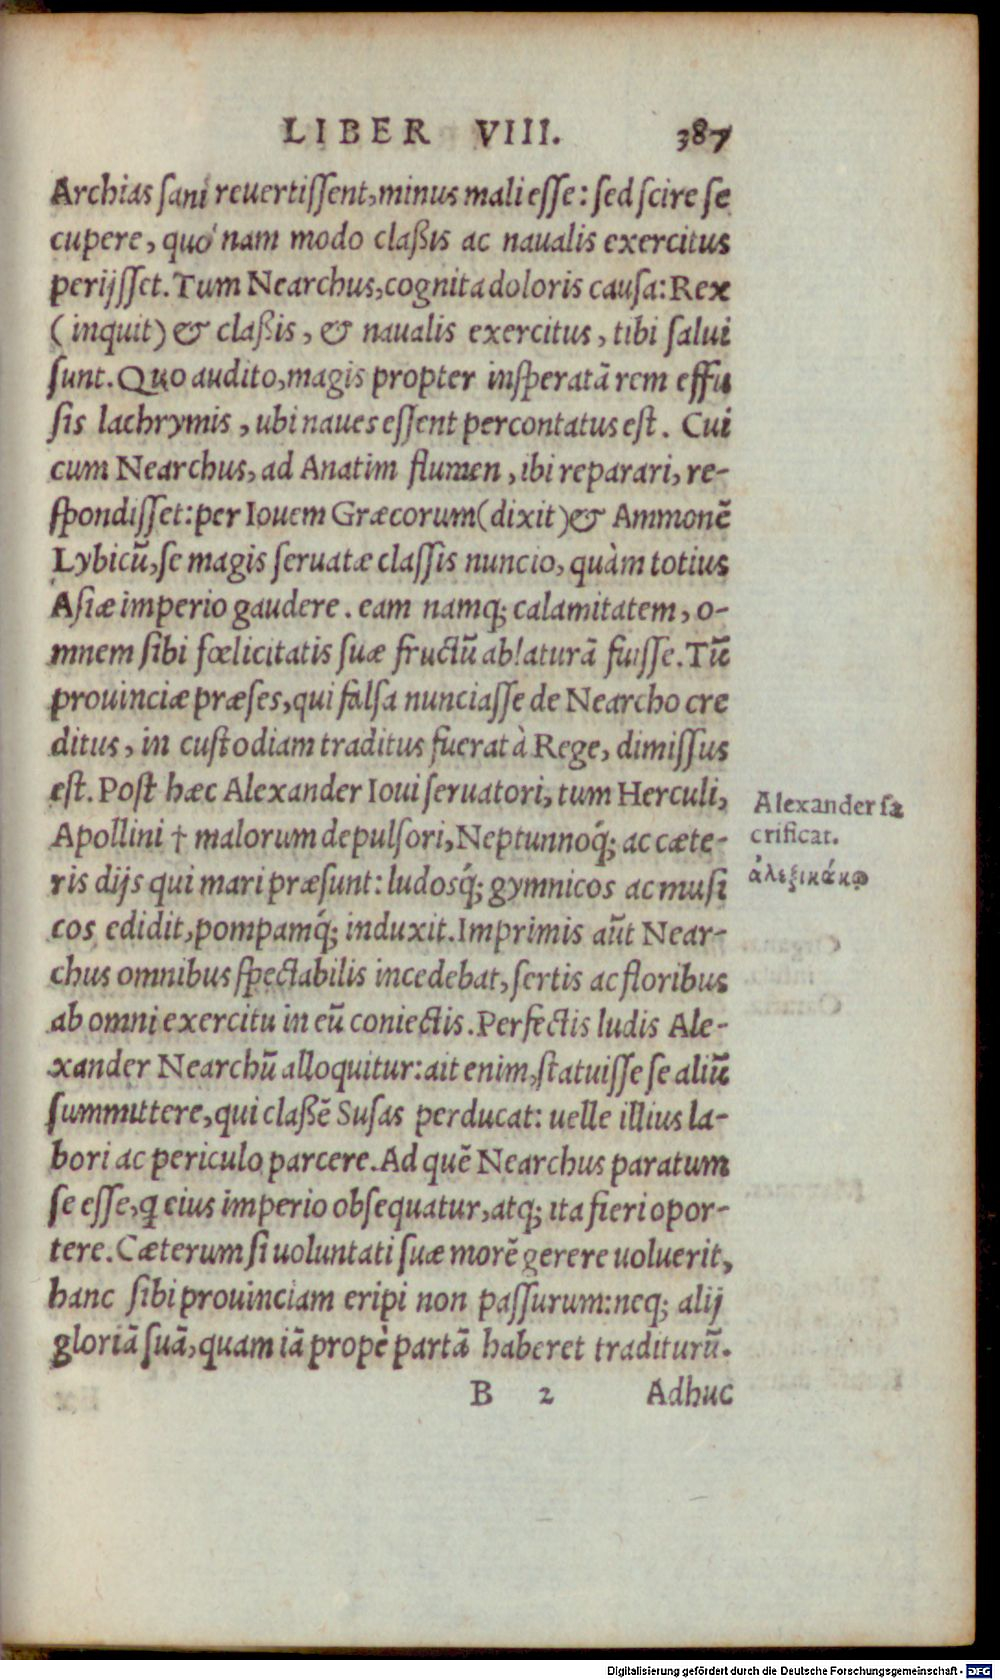 LIBER VIII. 387
Archias sani reuertissent, minus mali esse: sed scire se
cupere, quó nam modo claßis ac naualis exercitus
perijsset. Tum Nearchus, cognita doloris causa: Rex
(inquit) & claßis, & naualis exercitus, tibi salui
sunt. Quo audito, magis propter insperatā rem effu
sis lachrymis, ubi naues essent percontatus est. Cui
cum Nearchus, ad Anatim flumen, ibi reparari, re-
spondisset: per Iouem Græcorum (dixit) & Ammonē
Lybicū, se magis seruatæ classis nuncio, quàm totius
Asiæ imperio gaudere. eam namq; calamitatem, o-
mnem sibi fœlicitatis suæ fructū ablaturā fuisse. Tū
prouinciæ præses, qui falsa nunciasse de Nearcho cre
ditus, in custodiam traditus fuerat à Rege, dimissus
est. Post hæc Alexander Ioui seruatori, tum Herculi,
Apollini † malorum depulsori, Neptunnoq́; ac cæte-
ris dijs qui mari præsunt: ludosq́; gymnicos ac musi
cos edidit, pompamq́; induxit. Imprimis aūt Near-
chus omnibus spectabilis incedebat, sertis ac floribus
ab omni exercitu in eū coniectis. Perfectis ludis Ale-
xander Nearchū alloquitur: ait enim, statuisse se aliū
summittere, qui claßē Susas perducat: uelle illius la-
bori ac periculo parcere. Ad quē Nearchus paratum
se esse, q eius imperio obsequatur, atq; ita fieri opor-
tere. Cæterum si uoluntati suæ morē gerere uoluerit,
hanc sibi prouinciam eripi non passurum: neq; alij
gloriā suā, quam iā propè partā haberet traditurū.
B 2 Adhuc
Alexander sa
crificat.
ἀλεξικάκῳ
Digitalisierung gefördert durch die Deutsche Forschungsgemeinschaft - DFG